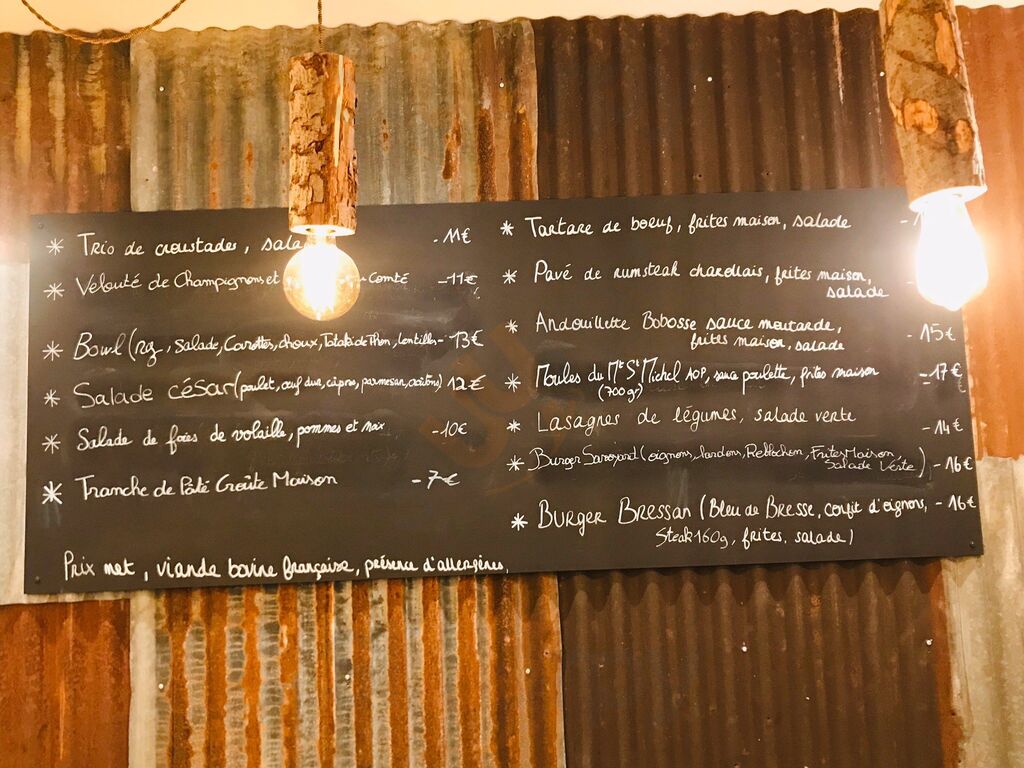 * Trio de croustades, sala - 11€
* Velouté de Champignons et Comté - 11€
* Bowl (riz, Salade, Carottes, choux, Tataki de Thon, lentilles - 13€
* Salade césar (poulet, œuf dur, câpres, parmesan, croûtons) 12€
* Salade de foies de volaille, pommes et noix - 10€
* Tranche de Pâté Croûte Maison - 7€
Prix net, viande bovine française, présence d'allergènes.
* Tartare de boeuf, frites maison, salade
* Pavé de rumsteak charollais, frites maison,
salade
* Andouillette Bobosse sauce moutarde,
frites maison, salade - 15€
* Moules du Mt St Michel AOP, sauce poulette, frites maison - 17€
(700gr)
* Lasagnes de légumes, salade verte - 14€
* Burger Savoyard (oignons, lardons, Reblochon, Frites Maison,
Salade Verte) - 16€
* Burger Bressan (Bleu de Bresse, confit d'oignons, - 16€
Steak 160g, frites, salade)